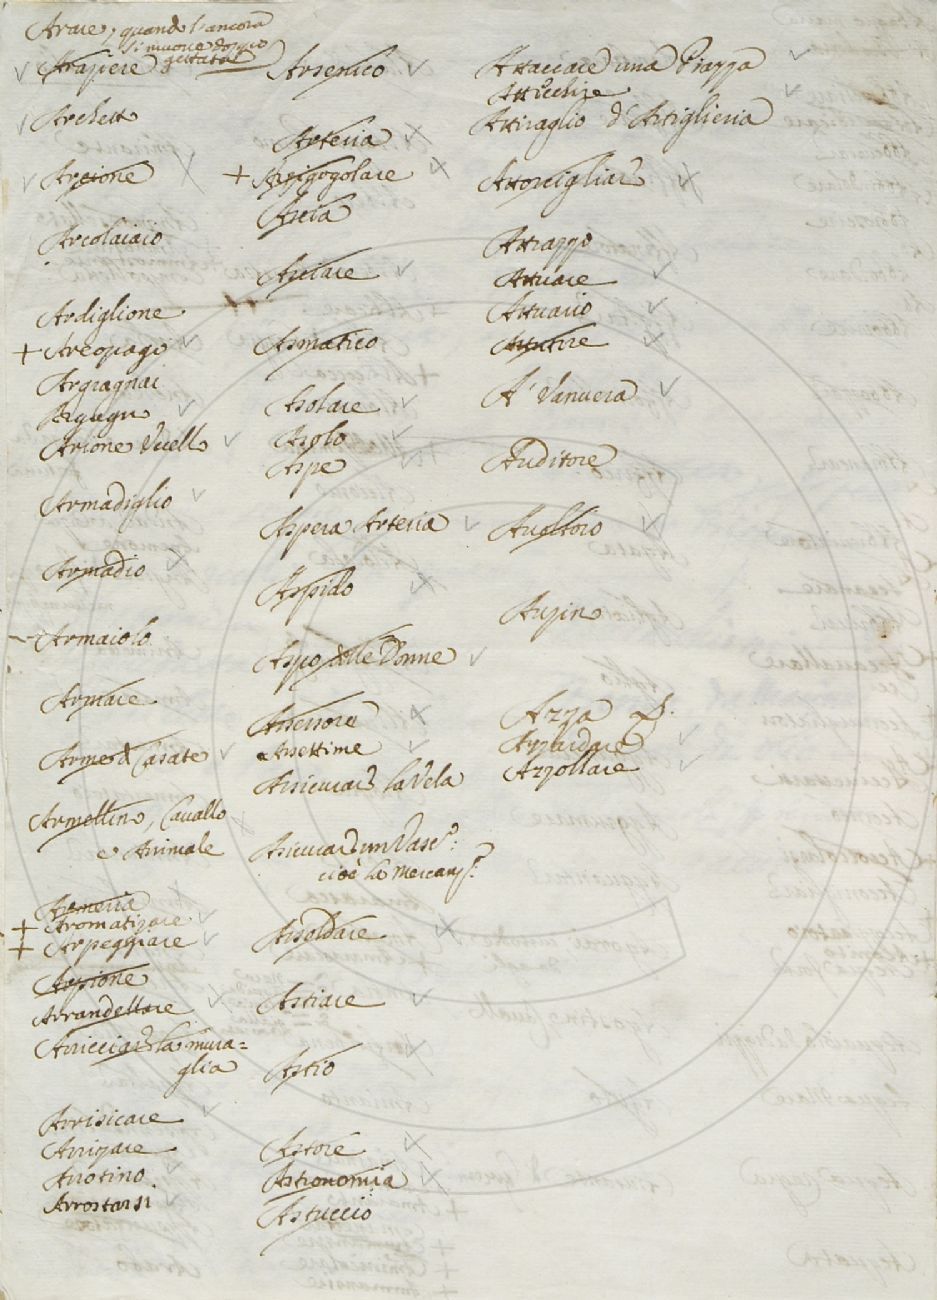 Arare, quand l'ancora
si muove doppo
gettata
Arapere
Archetto
Arcione
Arcolaiaio
Ardiglione
+ Areopago
Argiagnai
Arione Vcello
Armadiglio
Armadio
Armaiolo
Armare
Arme d Casate
Armellino, Cavallo
e Animale
Armeria
+ Aromatizare
+ Arpeggiare
Arpione
Arrandellare
Arricciare la mura=
glia
Arrisicare
Arrizare
Arrotino
Arrostarsi
Arsenico
Arteria
+ Arzigogolare
Ascia
Asciare
Asmatico
Asolare
Asolo
Aspe
Aspera Arteria
Aspido
Aspo delle Donne
Assessore
Assettime
Assicurare la Vela
Assicurare un Vasc.º:
cioè la mercanz.ª
Assoldare
Astiare
Astio
Astore
Astronomia
Astuccio
Attaccare una Piazza
Atticchire
Attiraglio d'Artiglieria
Attorcigliare
Attrappo
Attuare
Attuario
Attutire
A' Vanvera
Auditore
Avoltoio
Azza
Azzardare
Azzollare